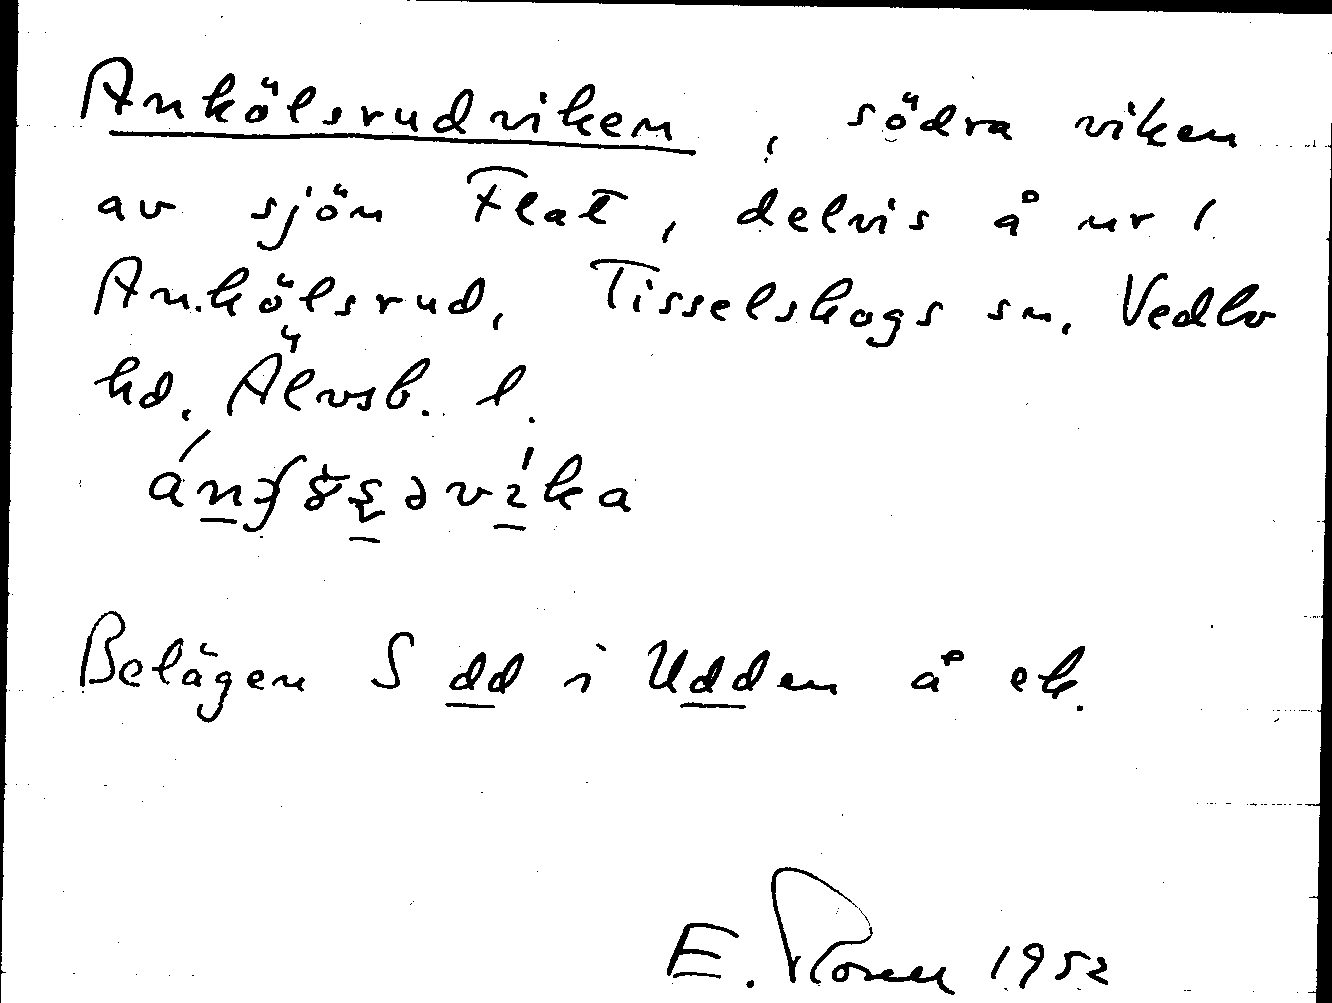 Ankölsrudviken, södra viken
av sjön Flat, delvis å nr 1
Ankölsrud, Tisselskogs sn, Vedbo
hd, Älvsb. l.
Belägen S dd i Udden å ek.
E. 1952